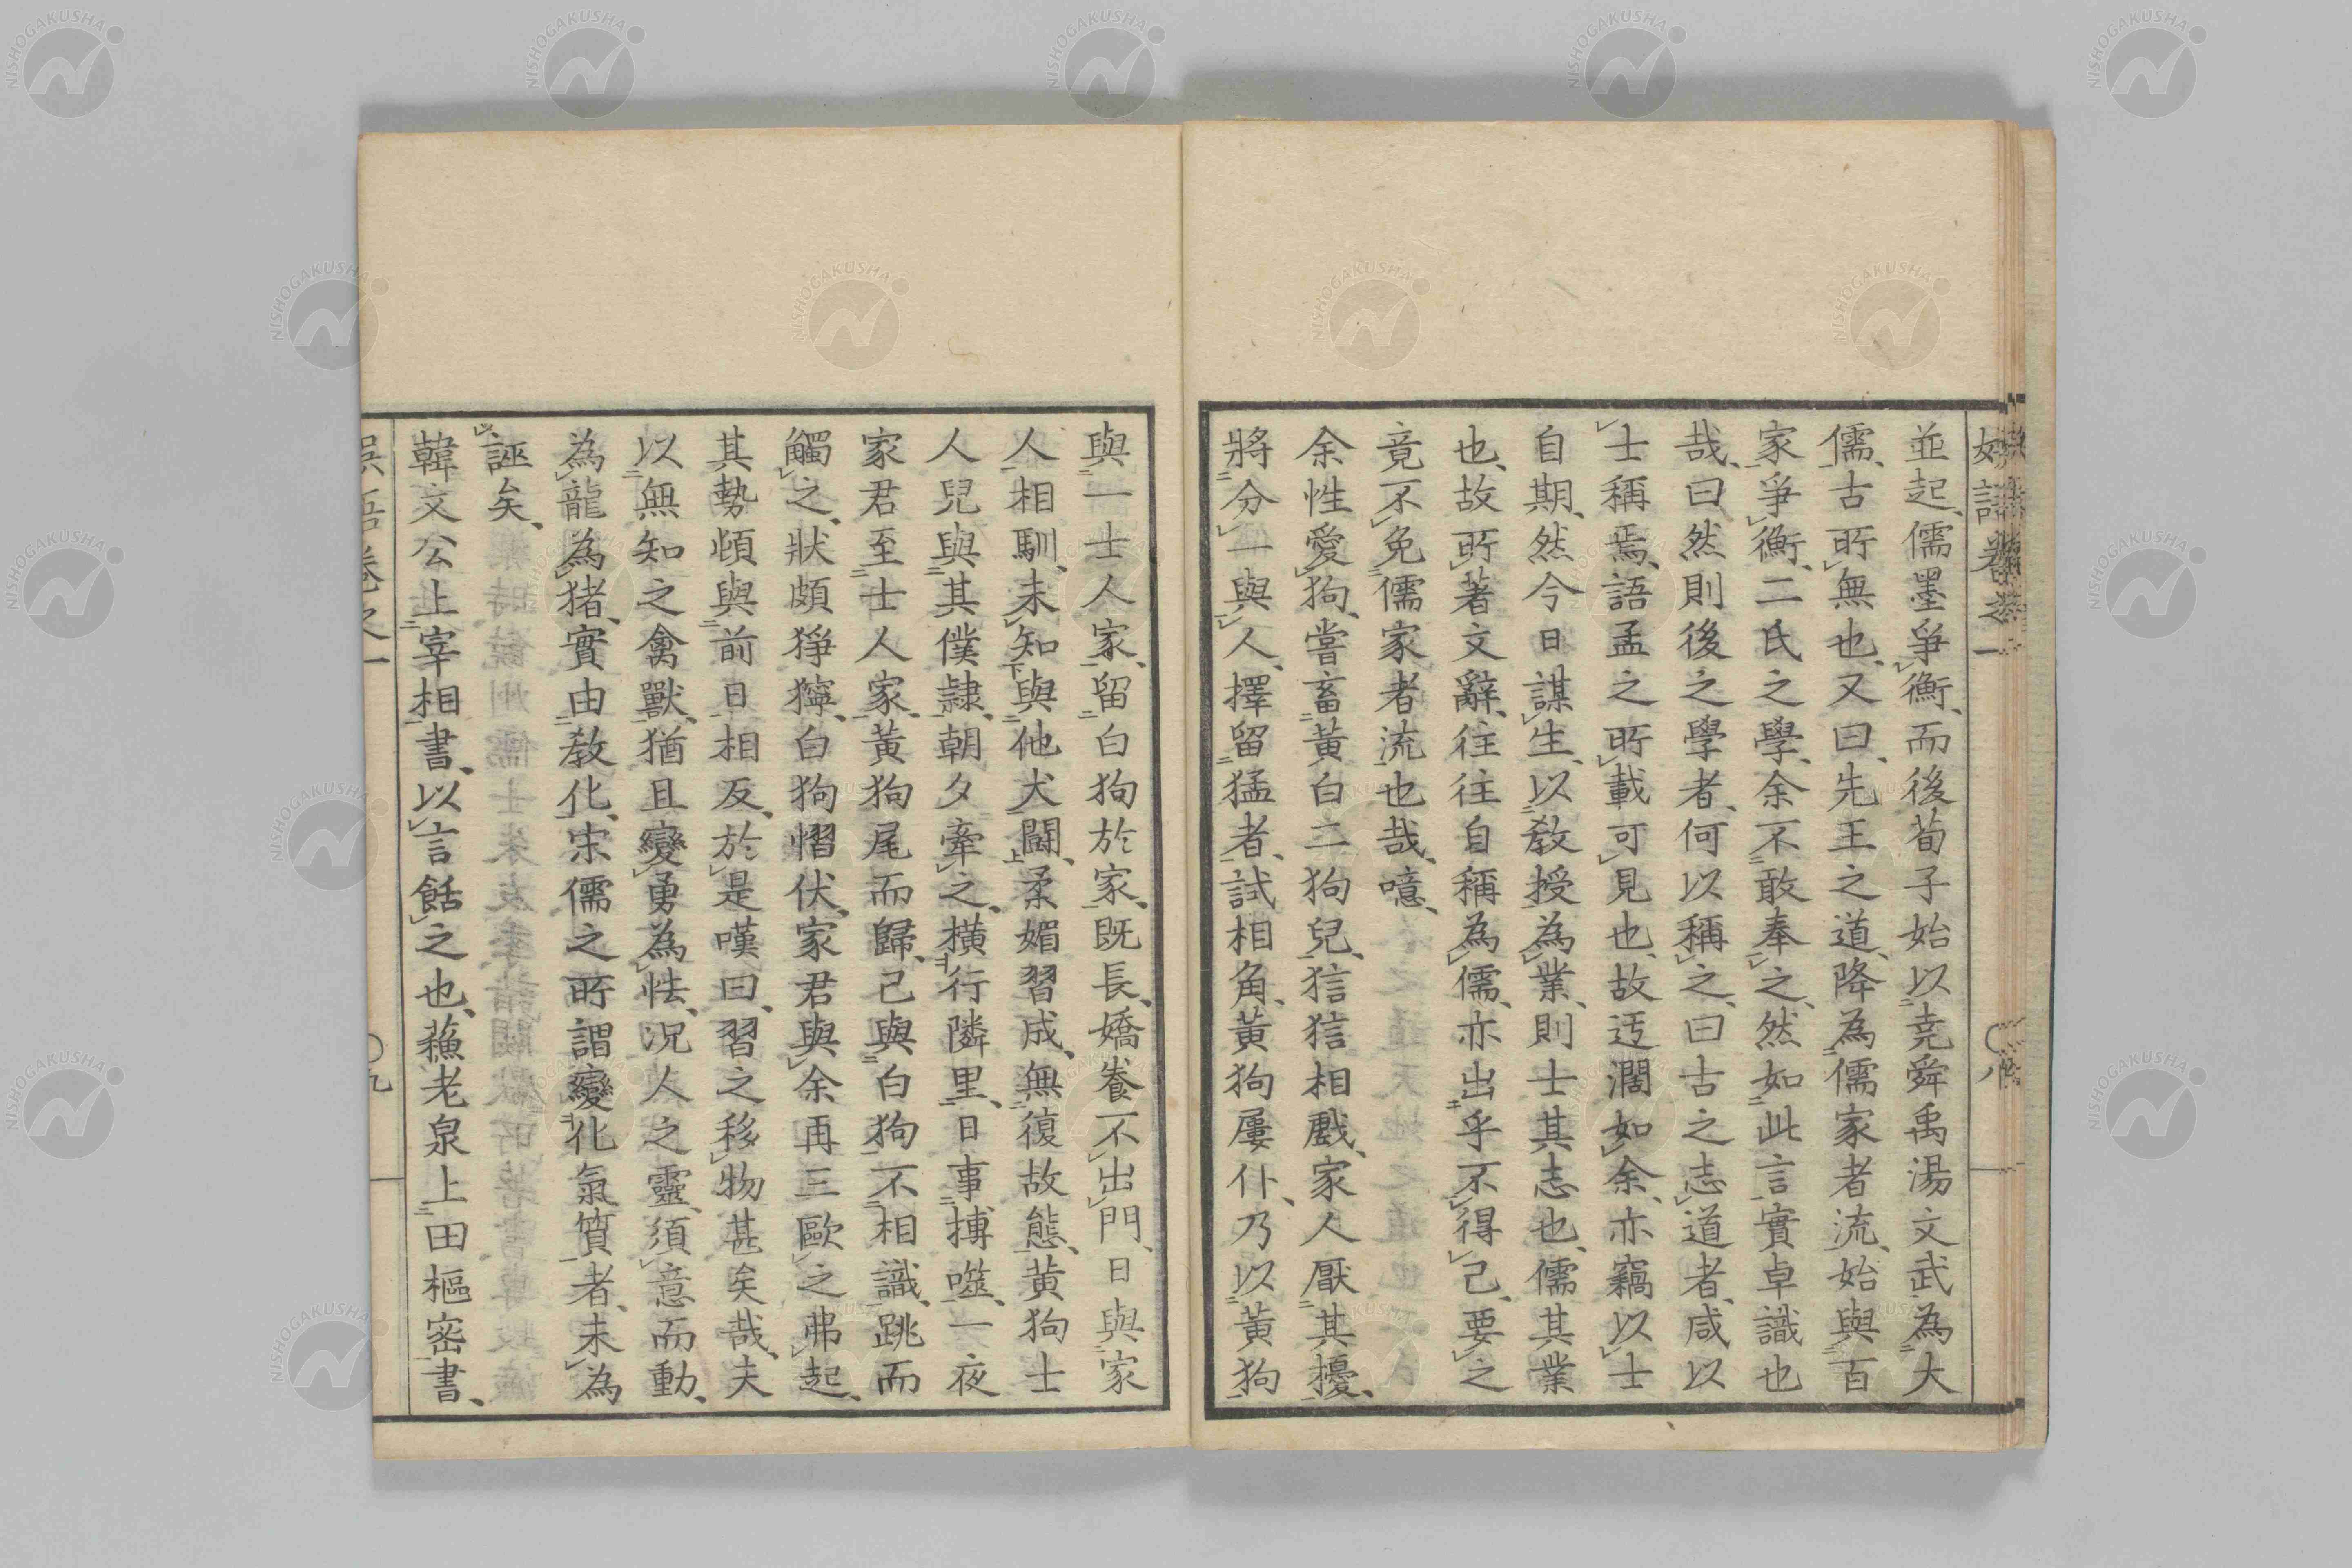 並起、儒墨爭衡、而後荀子始以堯舜禹湯文武為大
儒、古所無也、又曰、先王之道、降為儒家者流、始與百
家爭衡、二氏之學、余不敢奉之、然如此言實卓識也
哉、曰然則後之學者、何以稱之、曰古之志道者、咸以
士稱焉、語孟之所載可見也、故迂濶如余、亦竊以士
自期、然今日謀生、以教授為業、則士其志也、儒其業
也、故所著文辭、往往自稱為儒、亦出乎不得已、要之
竟不免儒家者流也哉、噫、
余性愛狗、嘗畜黃白二狗兒、狺狺相戲、家人厭其擾、
將分一與人、擇留猛者、試相角、黃狗屢仆、乃以黃狗
與一士人家、留白狗於家、既長、嬌養不出門、日與家
人相馴、未知與他犬鬪、柔媚習成、無復故態、黃狗士
人兒與其僕隷、朝夕牽之、橫行隣里、日事搏噬、一夜
家君至士人家、黃狗尾而歸、己與白狗不相識、跳而
觸之、狀頗猙獰、白狗慴伏、家君與余再三歐之弗起、
其勢頓與前日相反、於是嘆曰、習之移物甚矣哉、夫
以無知之禽獸、猶且變勇為怯、況人之靈、須意而動、
為龍為猪、實由教化、宋儒之所謂變化氣質者、未為
誣矣、
韓文公上宰相書、以言餂之也、蘓老泉上田樞密書、
卷之一
〇九
NISHOGAKUSHA